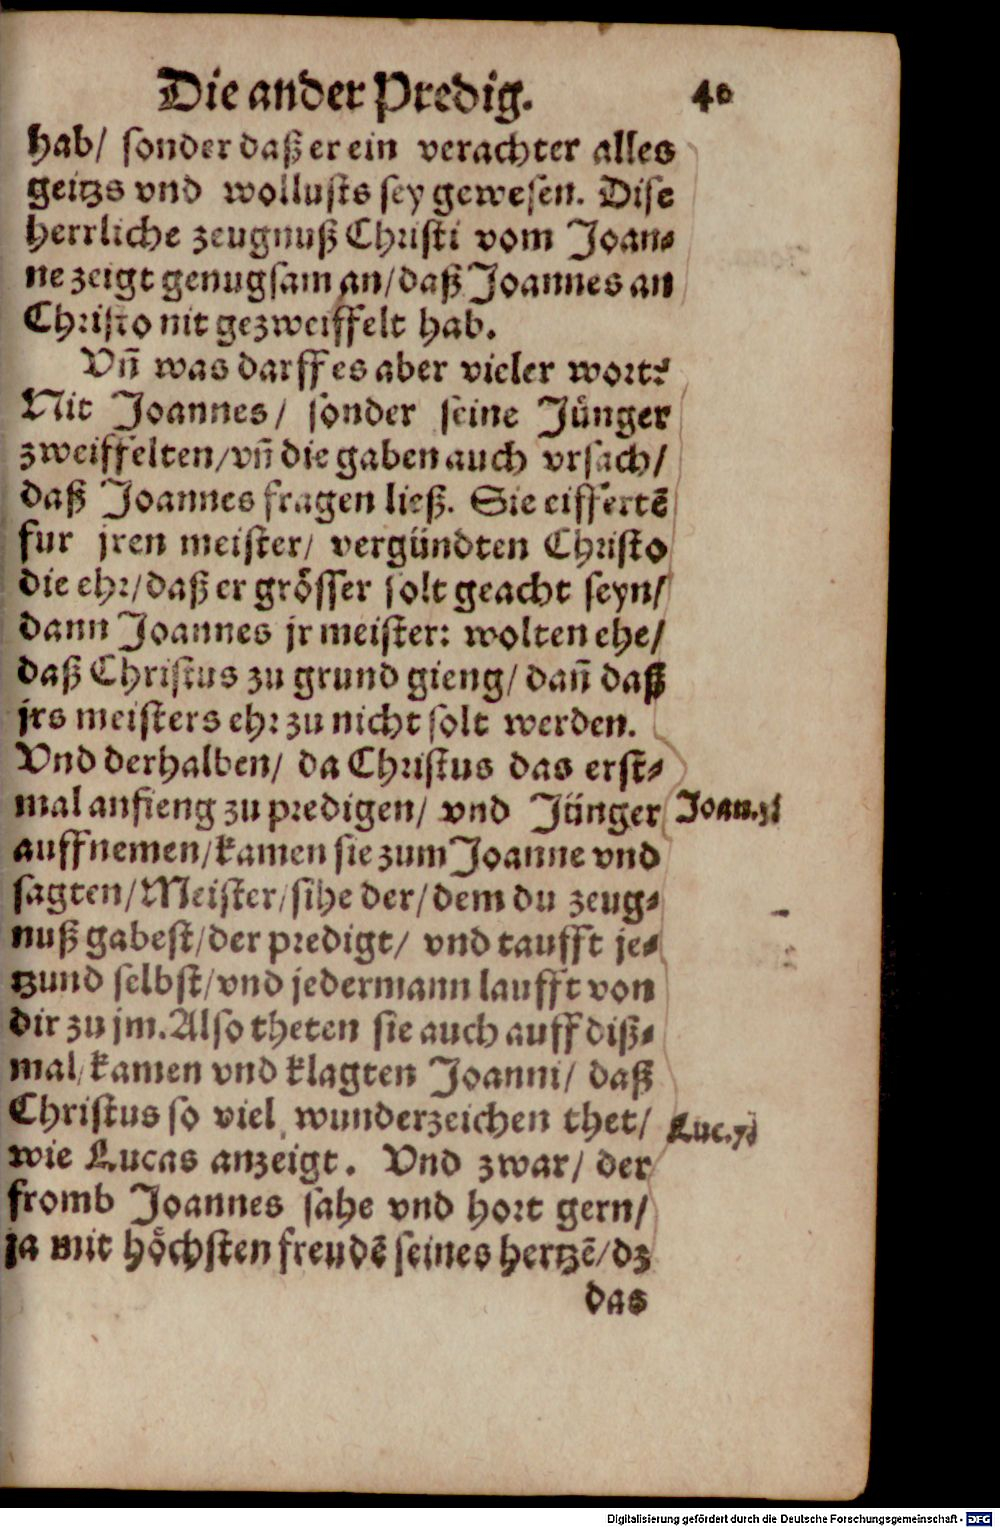 Die ander Predig. 40
hab/ sonder daß er ein verachter alles
geitzs vnd wollusts sey gewesen. Dise
herrliche zeugnuß Christi vom Joan⸗
ne zeigt genugsam an/ daß Joannes an
Christo nit gezweiffelt hab.
Vñ was darff es aber vieler wort?
Nit Joannes/ sonder seine Jünger
zweiffelten/ vñ die gaben auch vrsach/
daß Joannes fragen ließ. Sie eiffertē
fur jren meister/ vergündten Christo
die ehr/ daß er grösser solt geacht seyn/
dann Joannes jr meister: wolten ehe/
daß Christus zu grund gieng/ dañ daß
jrs meisters ehr zu nicht solt werden.
Vnd derhalben/ da Christus das erst⸗
mal anfieng zu predigen/ vnd Jünger
Joan.
auffnemen/ kamen sie zum Joanne vnd
sagten/ Meister/ sihe der/ dem du zeug⸗
nuß gabest/ der predigt/ vnd taufft je⸗
tzund selbst/ vnd jedermann laufft von
dir zu jm. Also theten sie auch auff diß⸗
mal/ kamen vnd klagten Joanni/ daß
Christus so viel wunderzeichen thet/
Luc.
wie Lucas anzeigt. Vnd zwar/ der
fromb Joannes sahe vnd hort gern/
ja mit höchsten freudē seines hertzē/ dz
das
Digitalisierung gefördert durch die Deutsche Forschungsgemeinschaft - DFG